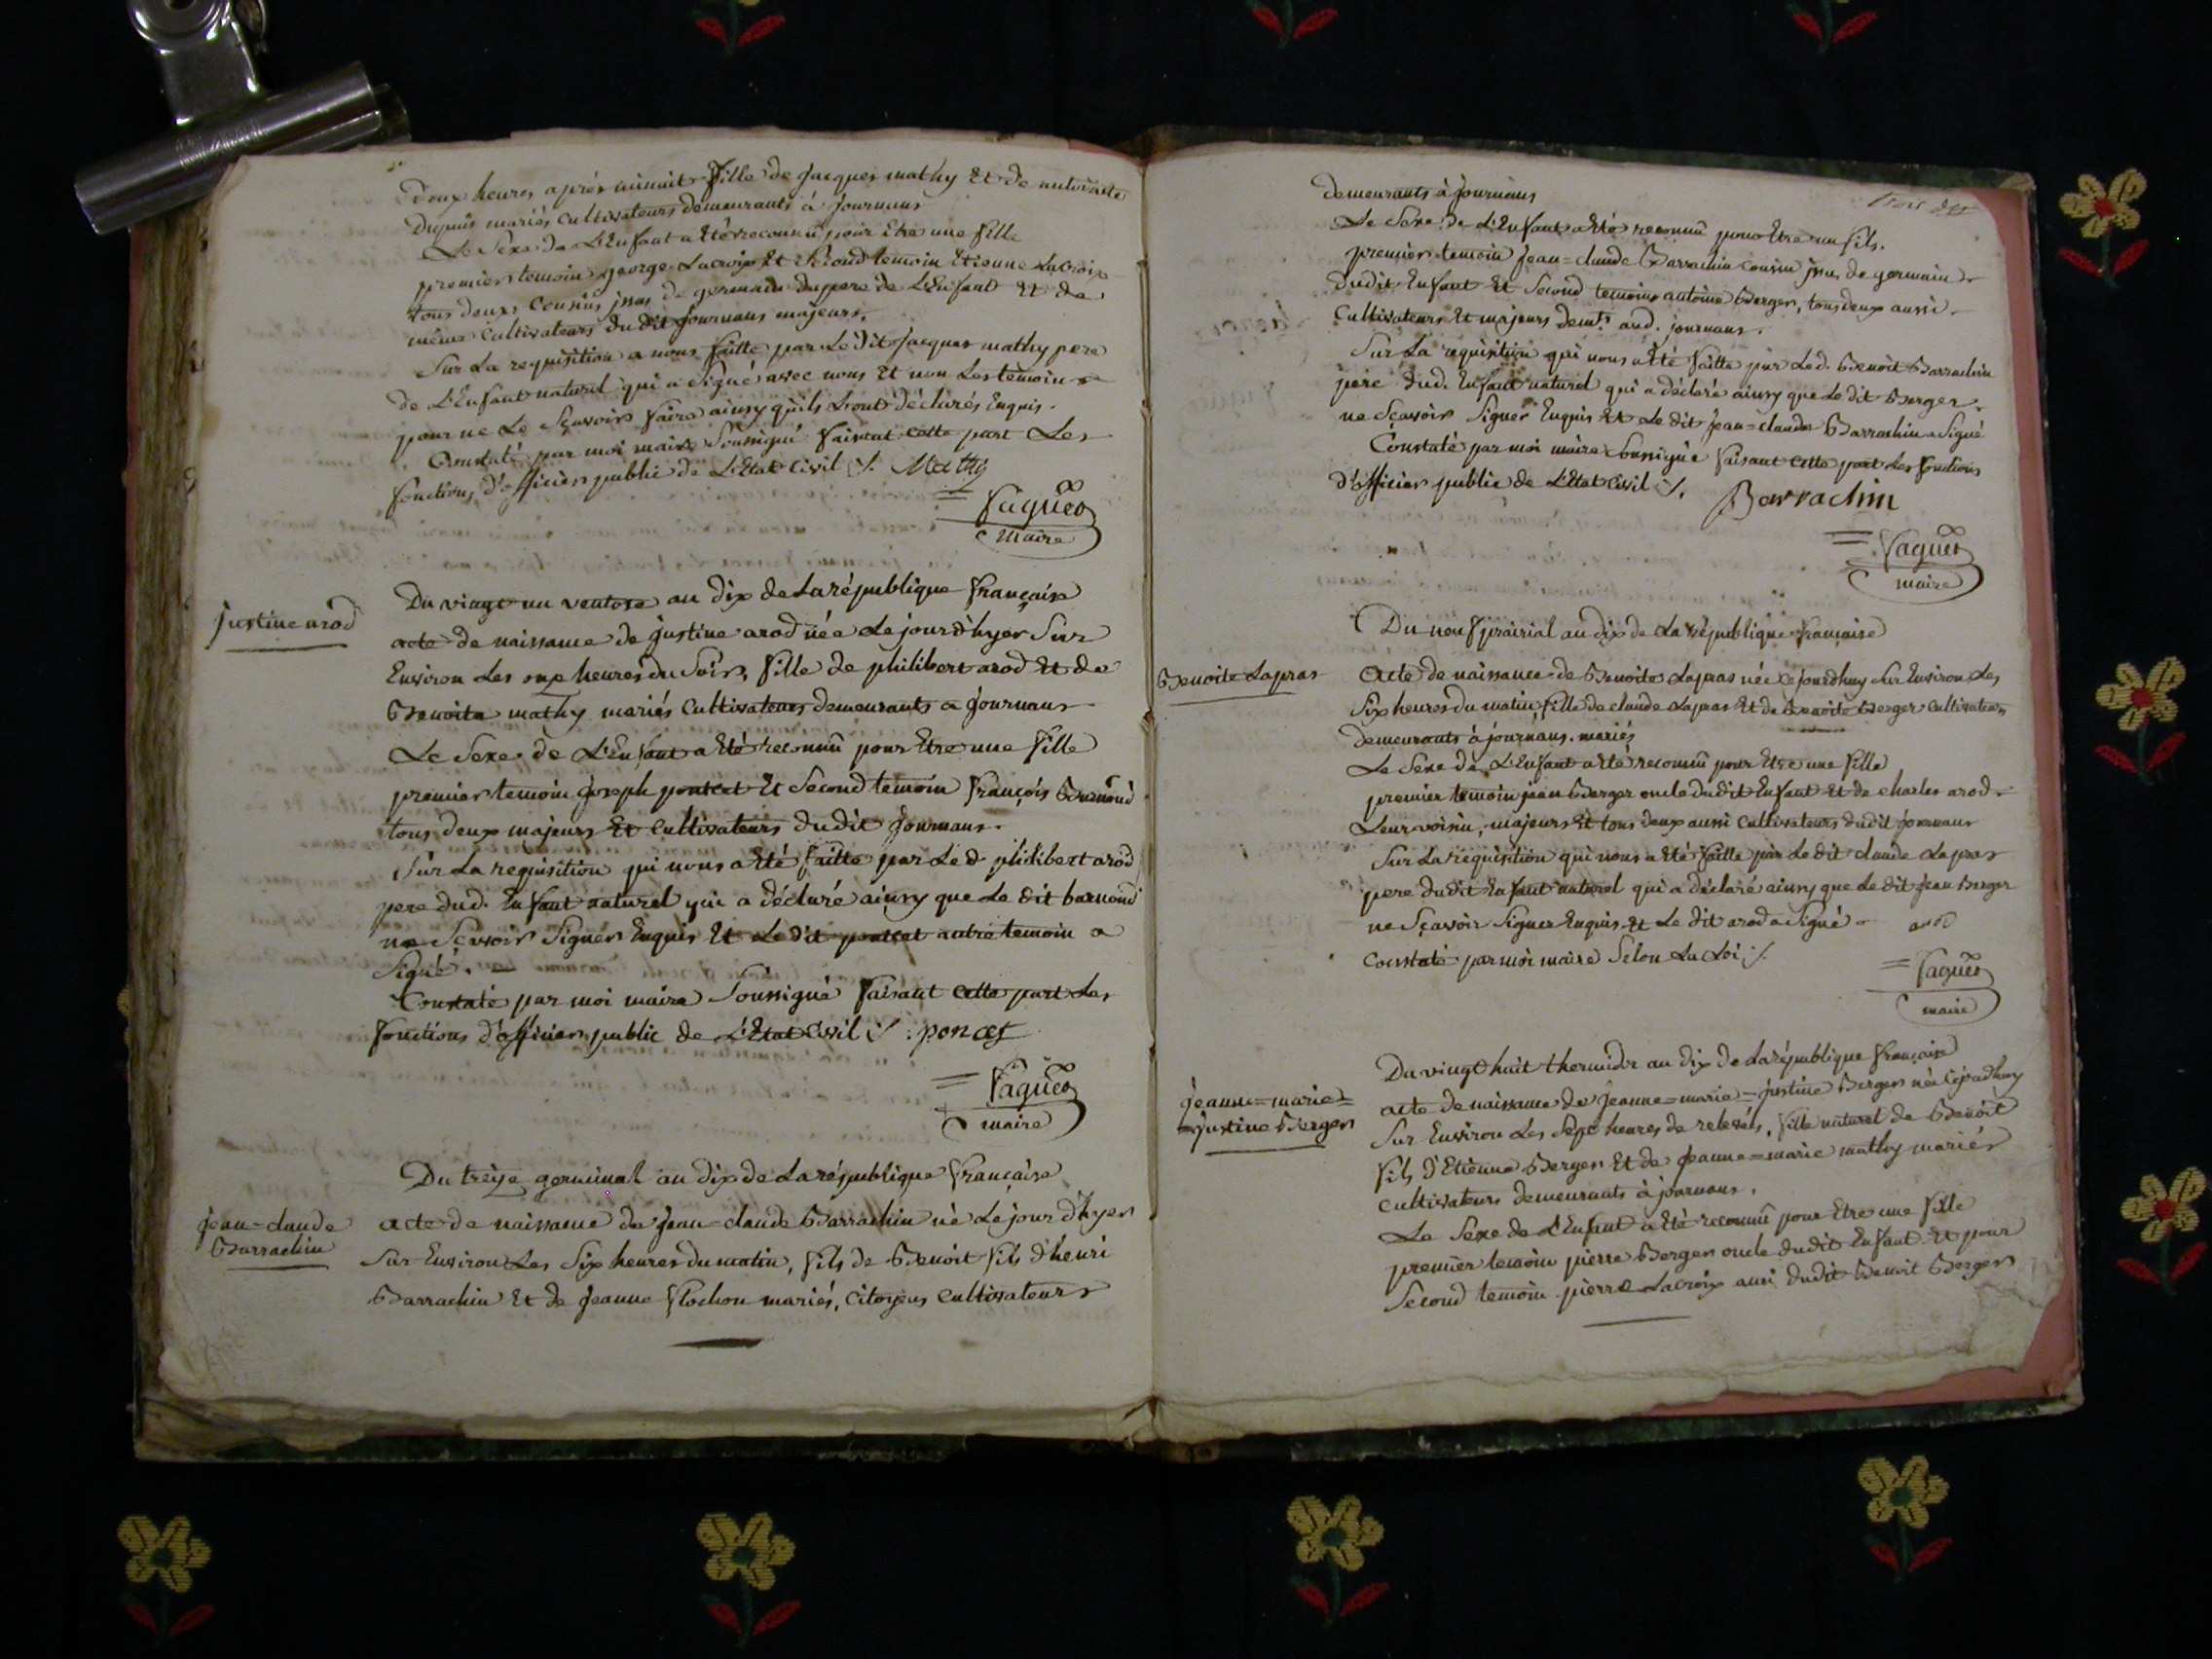 Deux heures après minuit fille de Jacques mathy Et de antoinette
Dupuis mariés cultivateurs demeurants à Journans
Le Sexe de L'Enfant a Eté reconnû pour Etre une fille
premier temoin george Lacroix Et Second temoin Etienne Lacroix
tous deux Cousins jssus de germain du pere de L'Enfant Et de
même cultivateurs du dit Journans majeurs.
Sur La requisition a nous faitte par Le dit Jacques mathy pere
de L'Enfant naturel qui a Signé avec nous Et non Les temoins
pour ne Le Sçavoir faire ainsy qu'ils L'ont déclarés Enquis.
Constaté par moi maire Soussigné faisant cette part Les
fonctions d'officier public de L'Etat Civil ./. Mathy
faguet
maire
Justine arod
Du vingt un ventose an dix de La république française
acte de naissance de Justine arod née Le jour d'hyer Sur
Environ Les onze heures du Soir, fille de philibert arod Et de
Benoite mathy mariés Cultivateurs demeurants a Journans
Le Sexe de L'Enfant a Eté reconnû pour Etre une fille
premier temoin Joseph poncet Et Second temoin françois Burnond
tous deux majeurs Et Cultivateurs dudit Journans.
Sur La requisition qui nous a Eté faitte par Le d. philibert arod
pere dud. Enfant naturel qui a déclaré ainsy que Le dit burnond
ne Sçavoir Signer Enquis Et Le dit poncet autre temoin a
Signé.
Constaté par moi maire Soussigné faisant cette part Les
fonctions d'officier public de L'Etat Civil ./. poncet
faguet
maire
Du treize germinal an dix de La république française
Jean=claude
Barrachin
acte de naissance de Jean=claude Barrachin né Le jour d'hyer
Sur Environ Les Six heures du matin, fils de Benoit fils d'henri
Barrachin Et de Jeanne flochon mariés, Citoyens Cultivateurs
demeurants à Journans
Le Sexe de L'Enfant a Eté reconnû pour Etre un fils.
premier temoin Jean=claude Barrachin cousin jssus de germain
dudit Enfant Et Second temoin antoine Berger, tous deux aussi
Cultivateurs Et majeurs demts aud. journans.
Sur La requisition qui nous a Eté faitte par Led. Benoit Barrachin
pere dud. Enfant naturel qui a déclaré ainsy que Le dit Berger
ne Sçavoir Signer Enquis Et Le dit Jean=claude Barrachin a Signé
Constaté par moi maire Soussigné faisant cette part Les fonctions
d'officier public de L'Etat Civil ./. Barrachin
faguet
maire
Du neuf prairial an dix de La république française
Benoite Lapras
Acte de naissance de Benoite Lapras née Ce jourdhuy Sur Environ Les
Six heures du matin, fille de claude Lapras Et de Benoite Berger cultivateurs
demeurants à journans. mariés
Le Sexe de L'Enfant a Eté reconnû pour Etre une fille
premier temoin jean Berger oncle dudit Enfant Et de charles arod
Leur voisin, majeurs Et tous deux aussi cultivateurs dudit journans
Sur La requisition qui nous a Eté faitte par Le dit claude Lapras
pere dudit Enfant naturel qui a déclaré ainsy que Le dit jean Berger
ne Sçavoir Signer Enquis Et Le dit arod a Signé arod
Constaté par moi maire Selon La Loi ./.
faguet
maire
Du vingt huit thermidor an dix de La république française
Jeanne=marie=
Justine Berger
acte de naissance de Jeanne=marie=Justine Berger née Cejourdhuy
Sur Environ Les Sept heures de relevés, fille naturel de Benoit
fils d'Etienne Berger Et de Jeanne=marie mathy mariés
cultivateurs demeurants à journans.
Le Sexe de L'Enfant a Eté reconnû pour Etre une fille
premier temoin pierre Berger oncle dudit Enfant Et pour
Second temoin pierre Lacroix ami dudit Benoit Berger